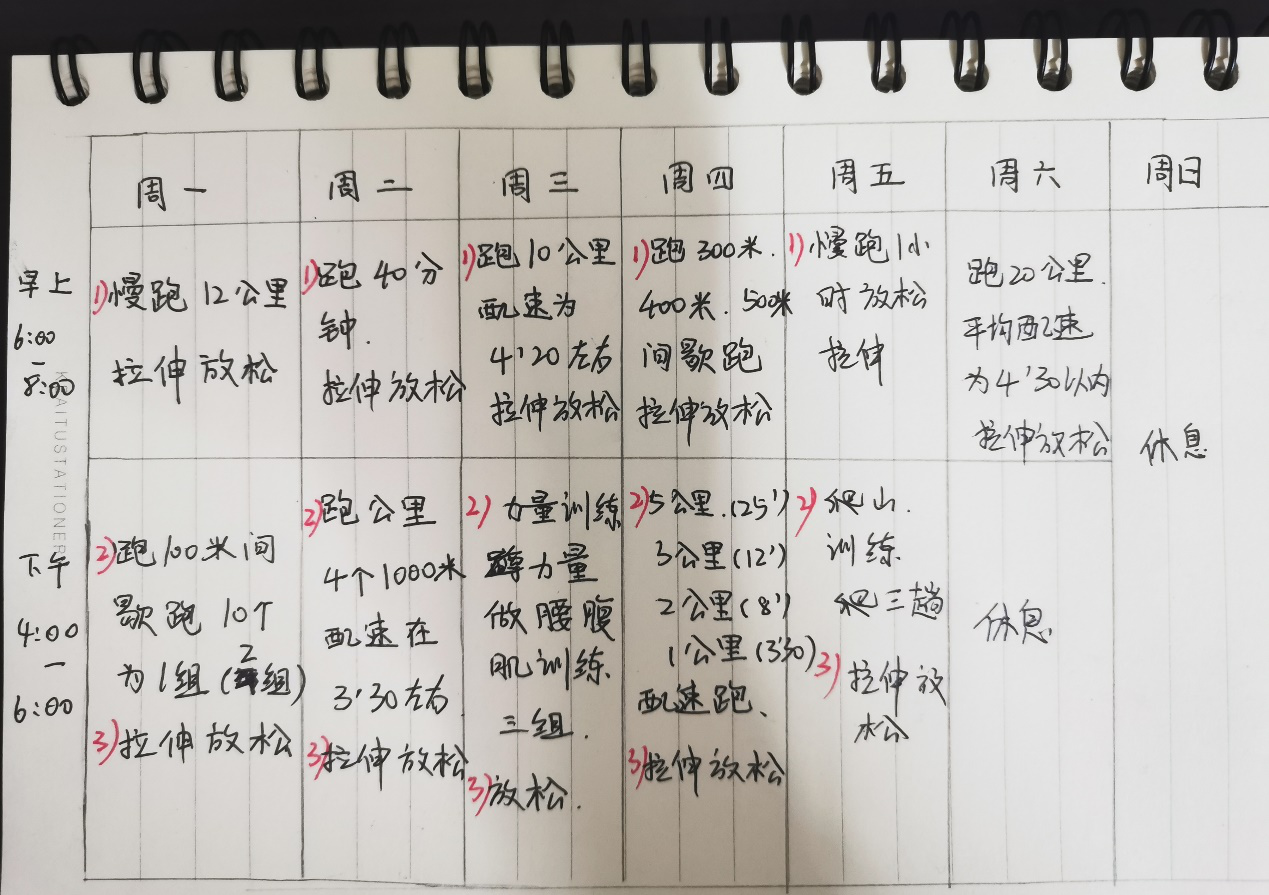 周一
周二
周三
周四
周五
周六
周日
早上
6:00
-
8:00
1)慢跑 12公里
拉伸放松
1)跑 40分
钟.
拉伸放松
1)跑10公里
配速为
4'20左右
拉伸放松
1)跑300米.
400米.500米
间歇跑
拉伸放松
1)慢跑1小
时放松
拉伸
跑20公里.
平均配速
为4'30以内
拉伸放松
休息
下午
4:00
-
6:00
2)跑100米间
歇跑 10个
为1组(2组)
3)拉伸放松
2)跑公里
4个1000米
配速在
3'30左右
3)拉伸放松
2)力量训练
力量
做腰腹
肌训练.
三组.
3)放松.
2)5公里.(25')
3公里(12')
2公里(8')
1公里(3'30)
配速跑、
3)拉伸放松
2)爬山.
训练
爬三趟
3)拉伸放
松
休息.
KAITUSTATIONER